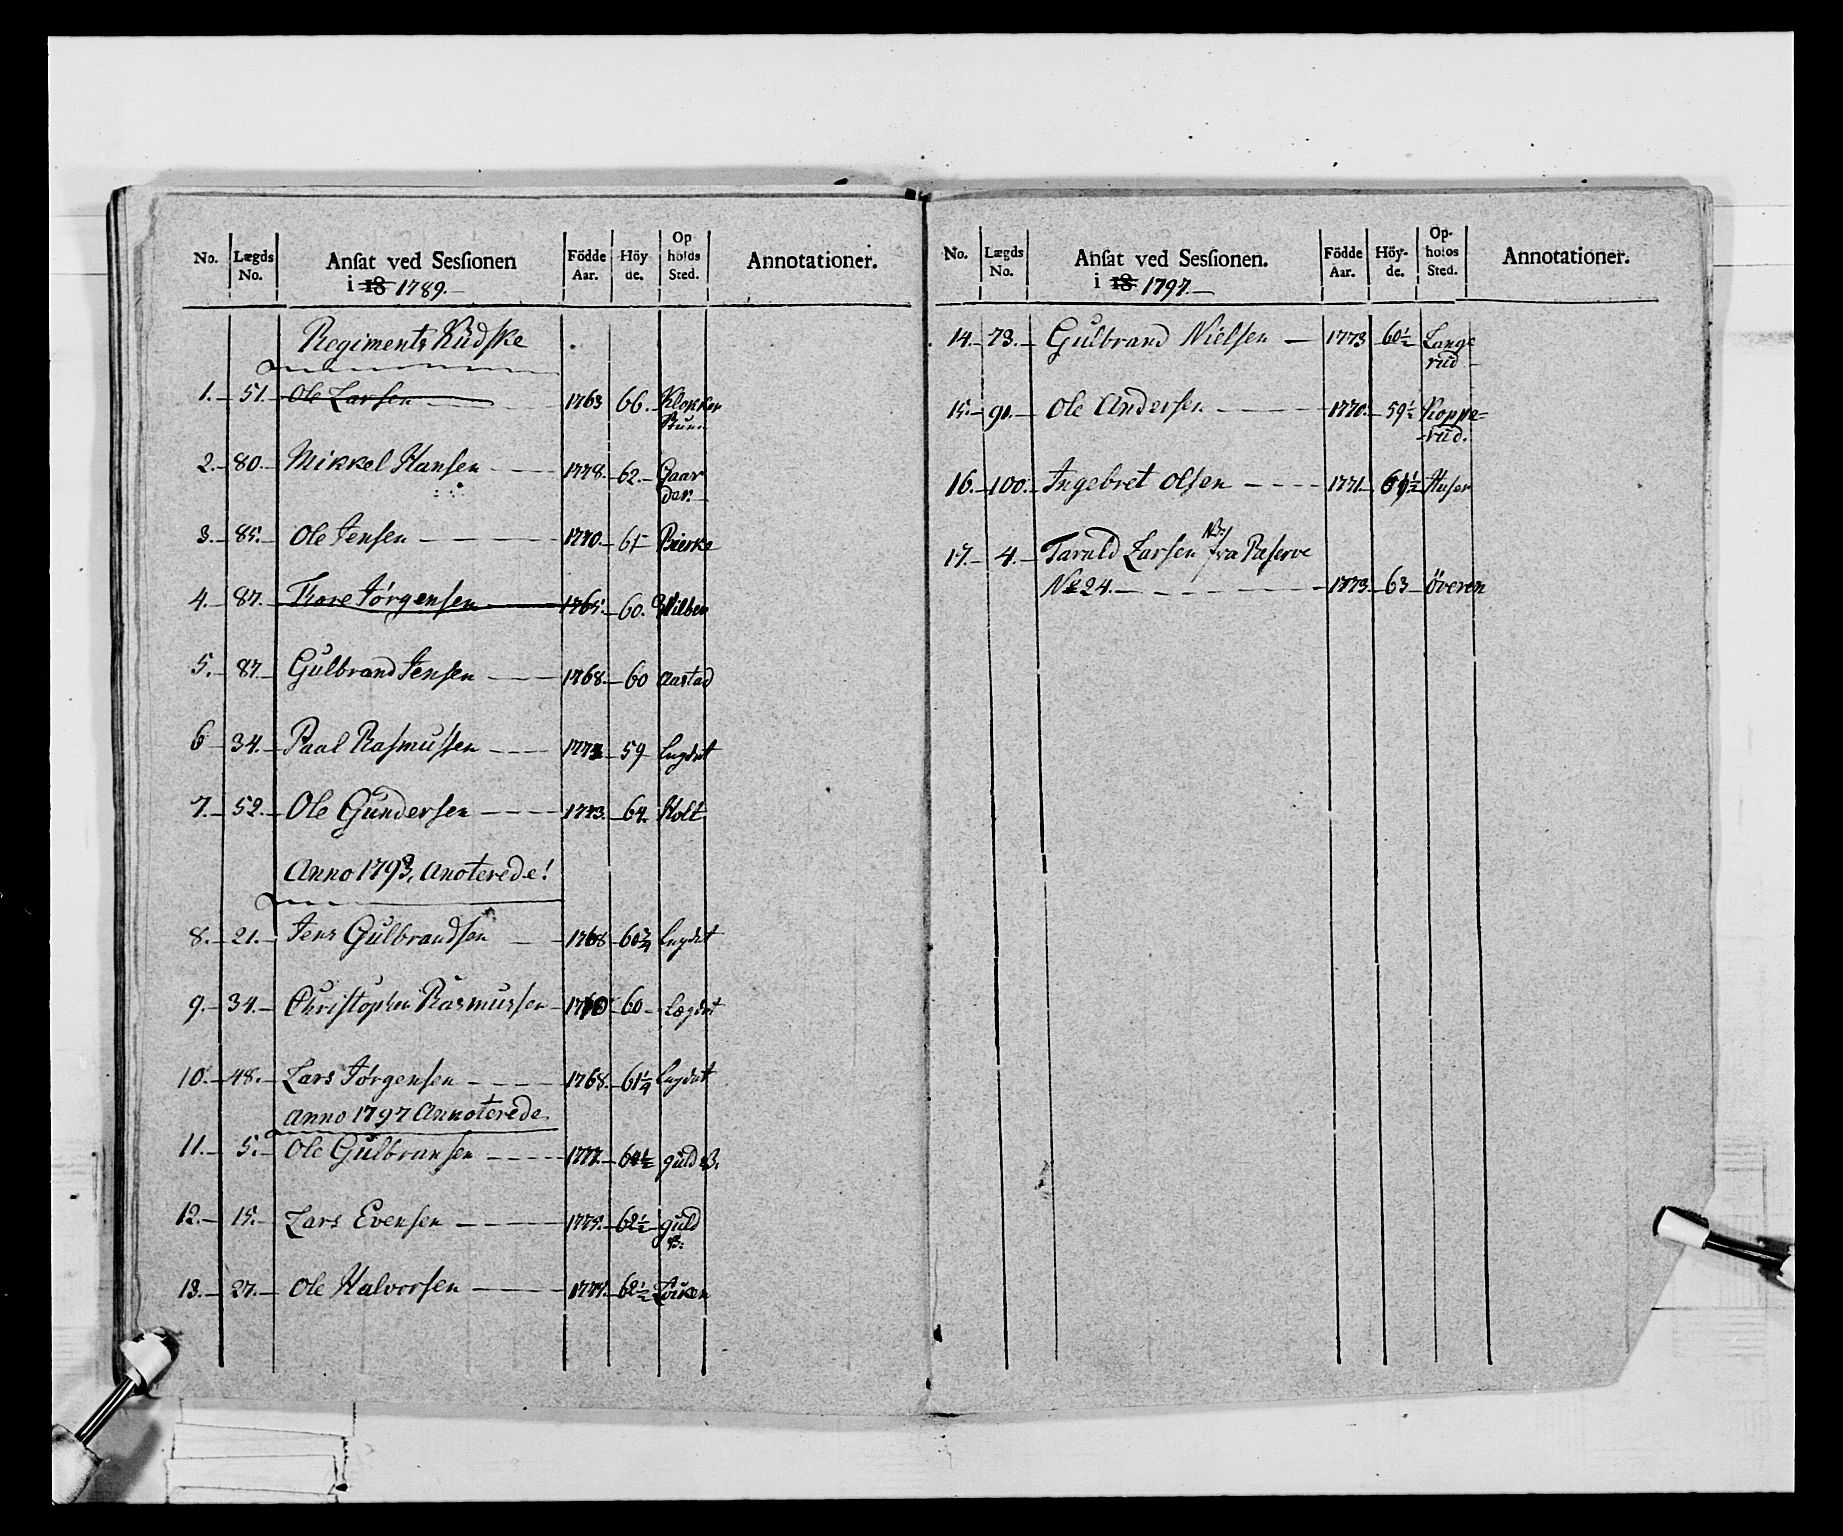 No. Lægds No. Ansat ved Sessionen i 18 1789. Födde Aar. Höyde. Opholds Sted. Annotationer.
Regiments Kudske
1. 51. Ole Larsen 1763 66. Klokker
2. 80. Mikkel Hansen 1778. 62. Gaarder.
3. 85. Ole Jensen 1770. 61 Bierke
4. 87. Thore Jørgensen 1765. 60. Wilben
5. 87. Gulbrand Jensen 1768. 60 Aastad
6 34. Paal Rasmussen 59 Lægdet
7. 52. Ole Gundersen 1773. 64. Holt
Anno 1793, Anoterede!
8. 21. Jens Gulbrandsen 1768 60 3/4 Lægdet
9. 34. Christopher Rasmussen 60 Lægdet
10. 48. Lars Jørgensen 1768. 61 1/4 Lægdet
Anno 1797 Annoterede
11. 5. Ole Gulbransen 1777. guld B.
12. 15. Lars Evensen 1775. 62 1/2 guld
B:
13. 27. Ole Halvorsen 1777. 62 1/2 Löken
No. Lægds No. Ansat ved Sessionen. i 18 1797. Födde Aar. Höy-de. Op-holds Sted. Annotationer.
14. 73. Gulbrand Nielsen 1773 60 1/2 Lange
rud
15. 90. Ole Andersen 1770. 59 1/2 Koppe=
rud.
16. 100. Ingebret Olsen 1771. Huser
17. 4. Tarald Larsen fra Reserve
No 24. 1773. 63 Överen